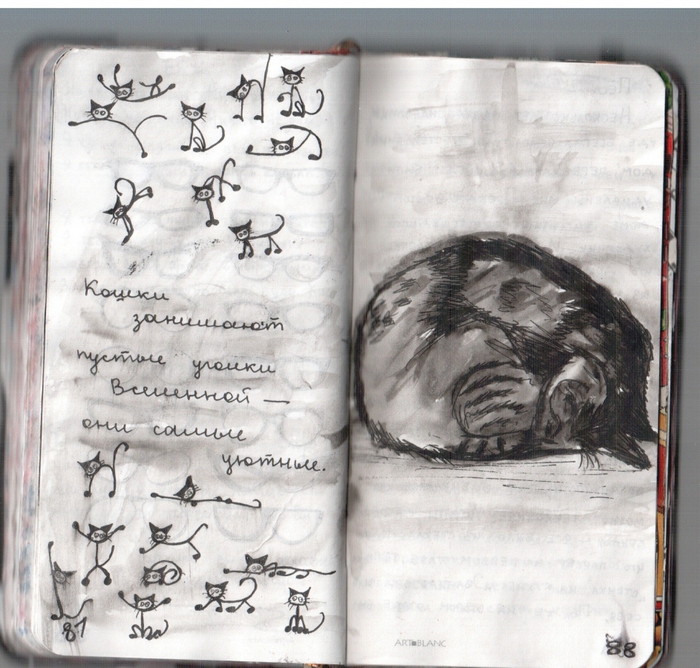 Кошки
занимают
пустые уголки
Вселенной —
они самые
уютные.
87
ART■BLANC
88